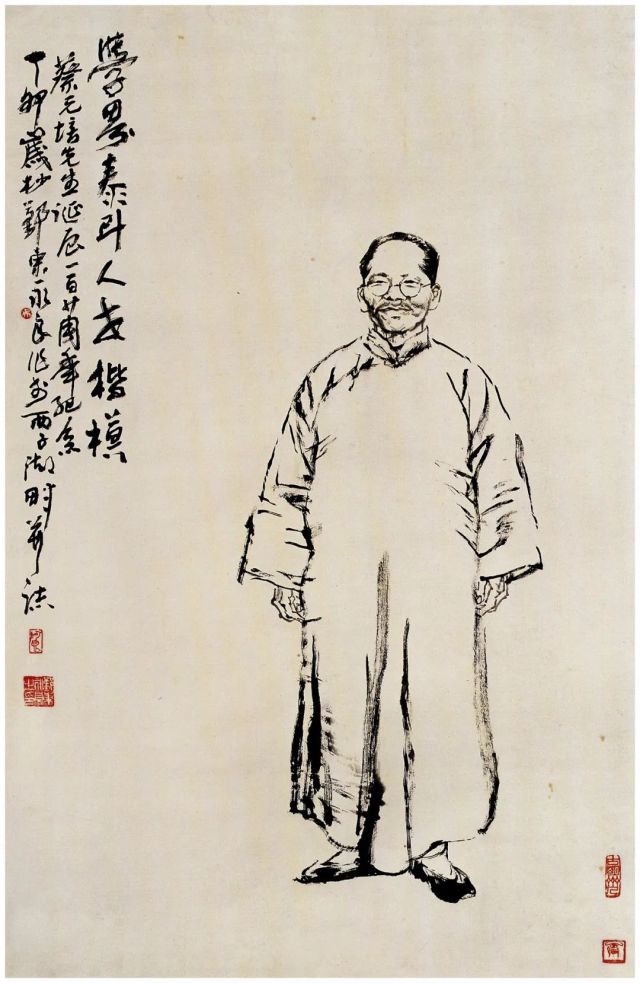 學界泰斗人世楷模
蔡元培先生诞辰一百廿周年紀念
丁卯歲杪鄞東永良作於西子湖畔并誌